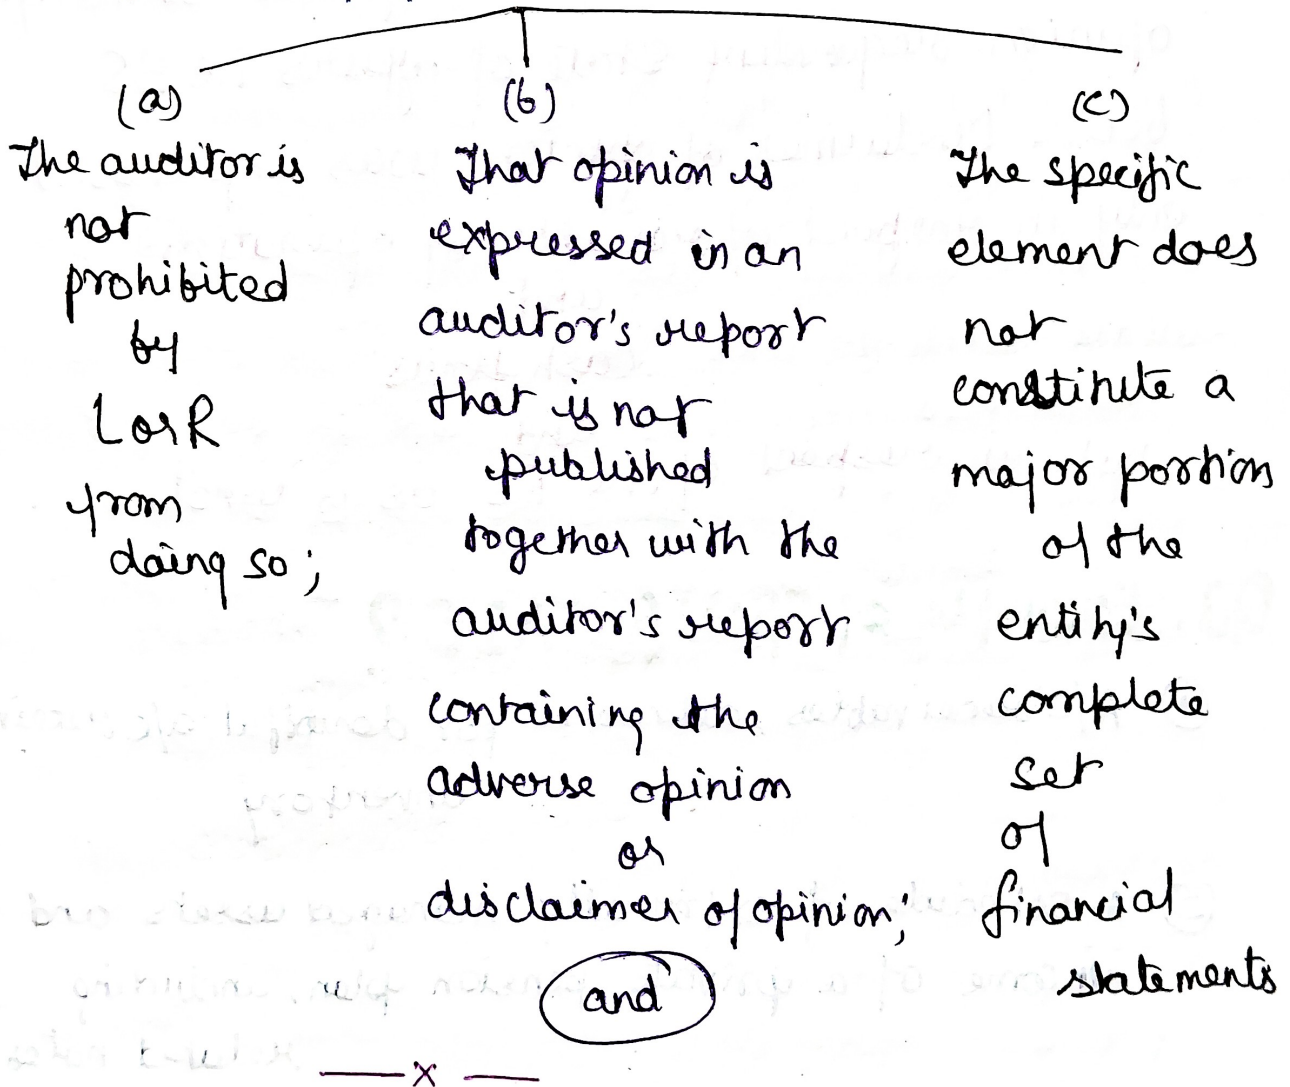 (a)
The auditor is
not
prohibited
by
LorR
from
doing so;
(b)
That opinion is
expressed in an
auditor's report
that is not
published
together with the
auditor's report
containing the
adverse opinion
or
disclaimer of opinion;
and
(c)
The specific
element does
not
constitute a
major portion
of the
entity's
complete
set
of
financial
statements
x